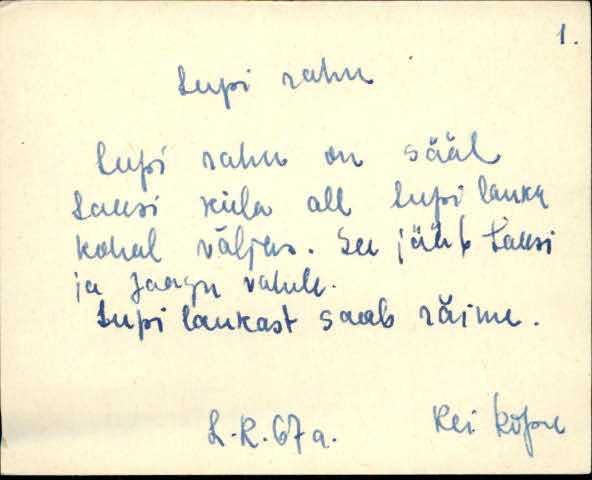 1.
Supi rahu
Supi rahu on sääl
Lausi küla all Supi lauka
kohal väljas. See jääb Lausi
ja Jaagu vahele.
Supi laukast saab räime.
L.R. 67 a. Rei Kõpu